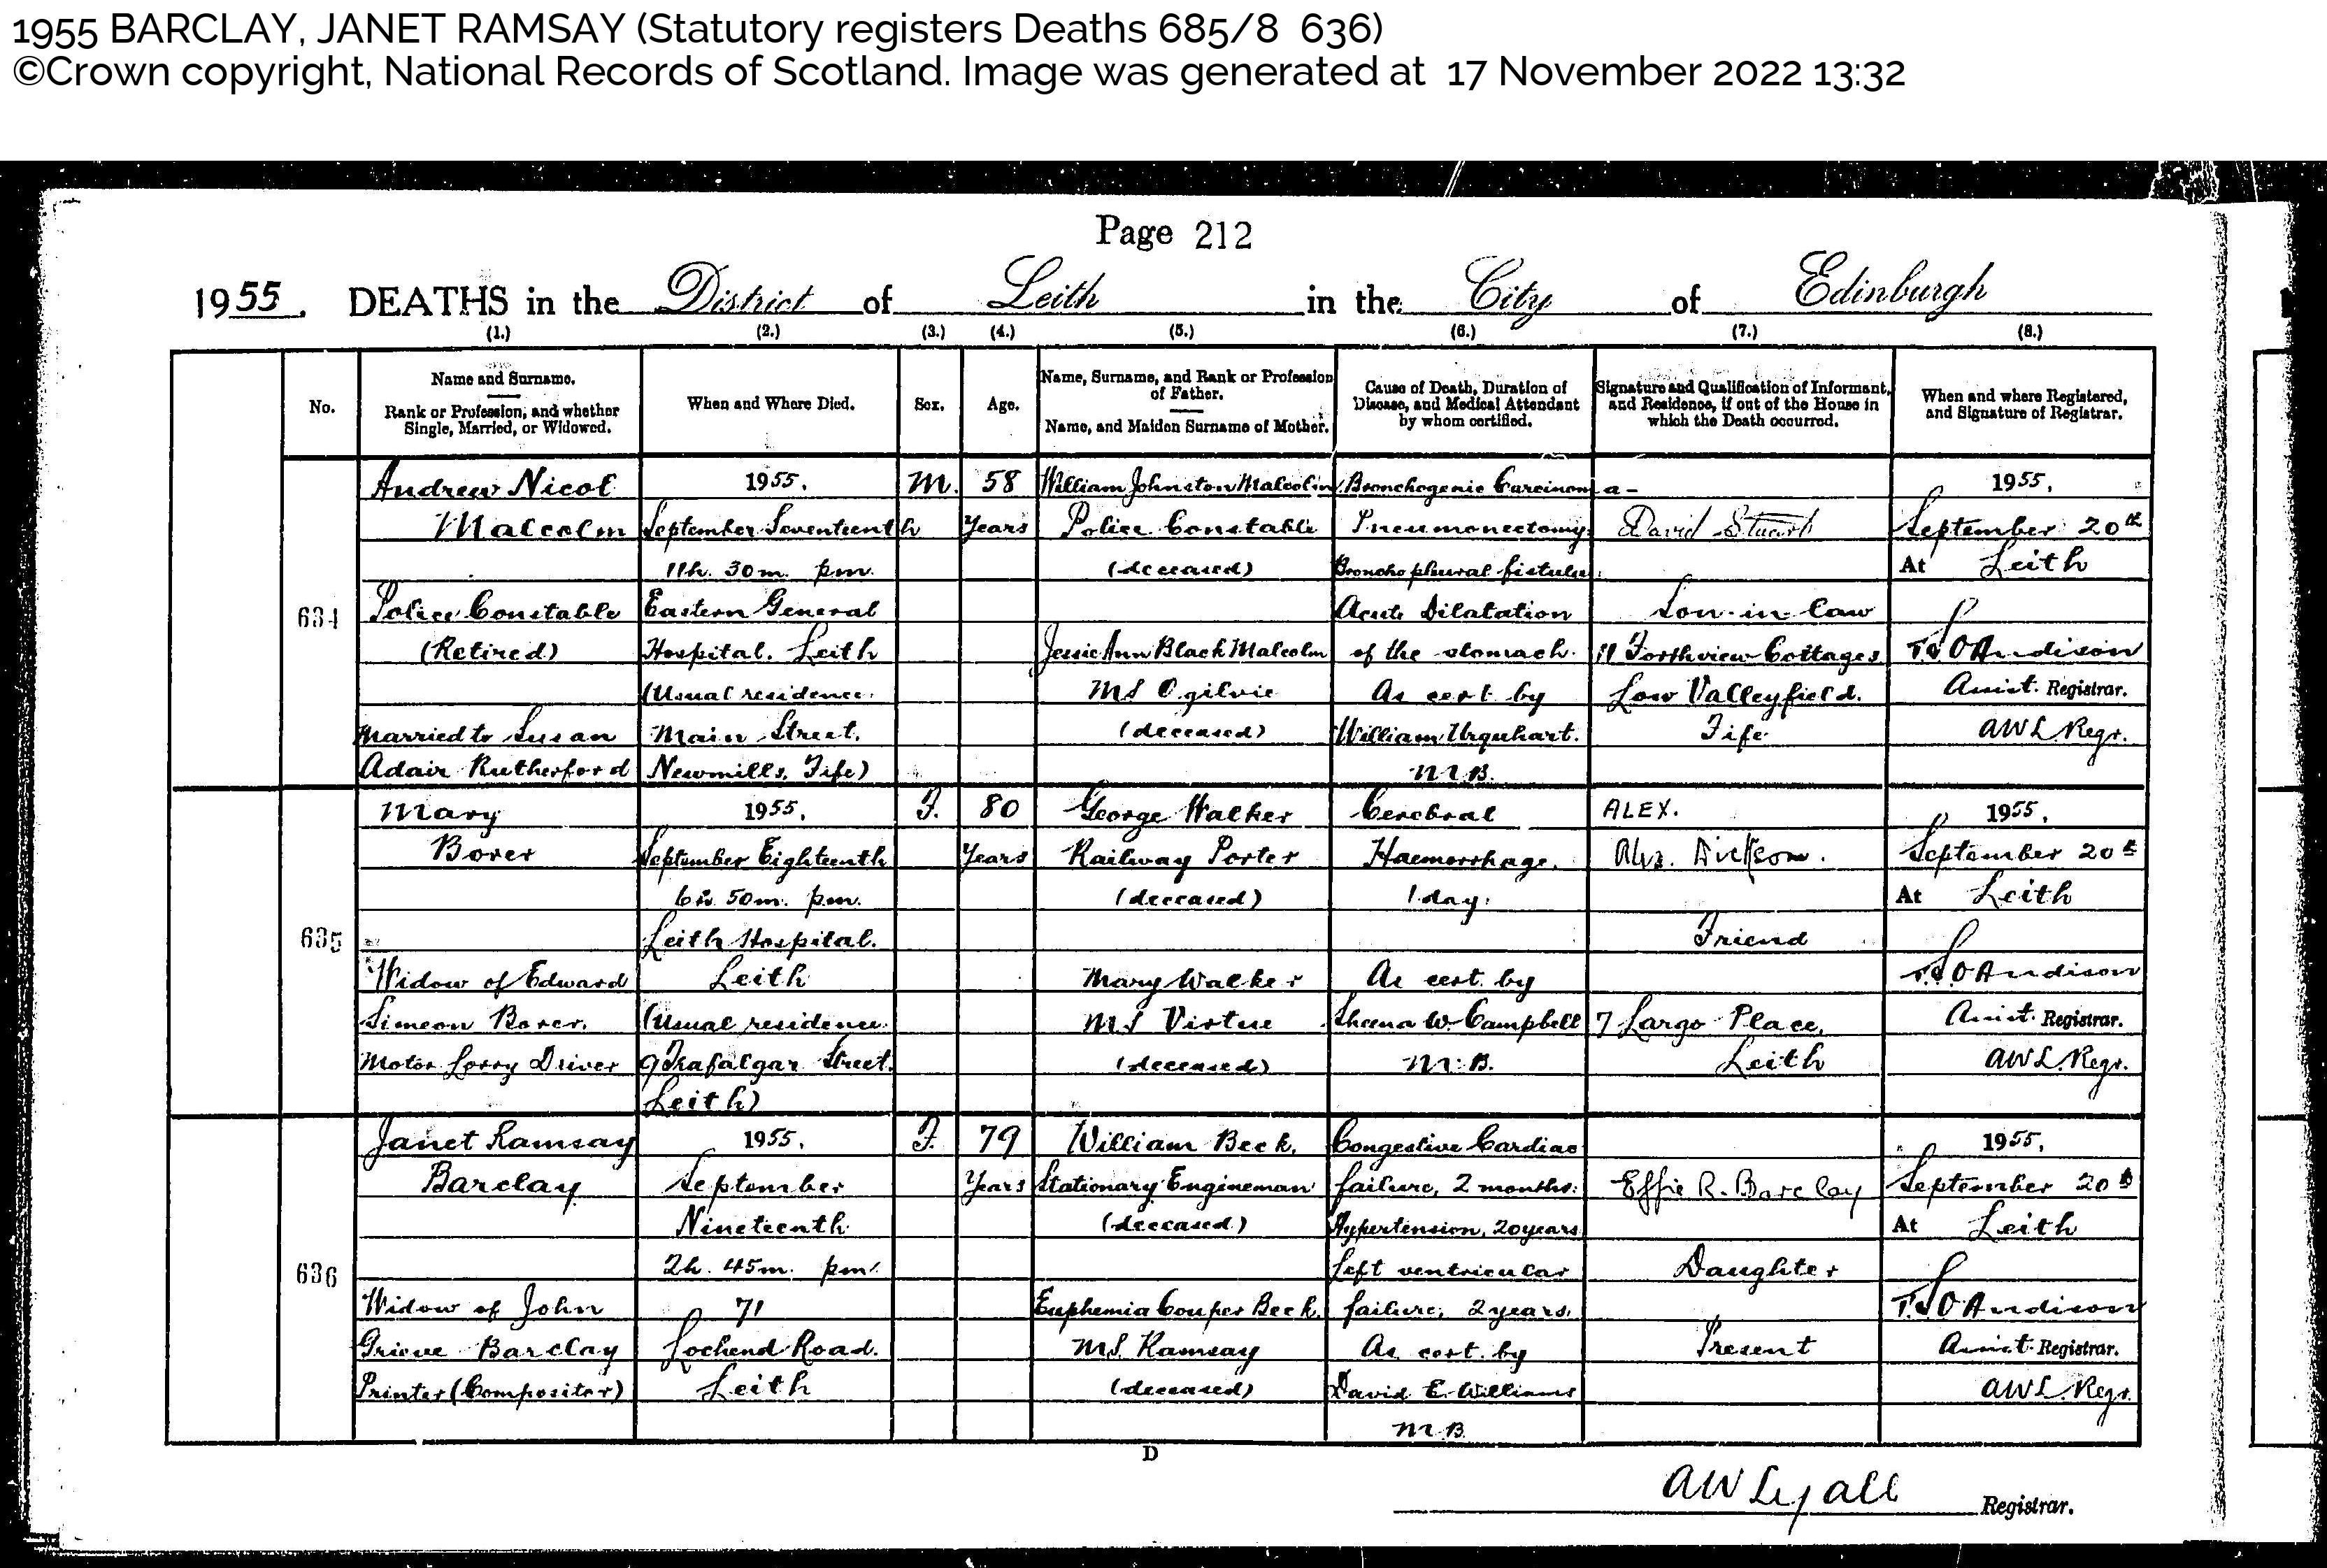 1955 BARCLAY, JANET RAMSAY (Statutory registers Deaths 685/8 636)
©Crown copyright, National Records of Scotland. Image was generated at 17 November 2022 13:32
Page 212
1955. DEATHS in the District of Leith in the City of Edinburgh
(1.) (2.) (3.) (4.) (5.) (6.) (7.) (8.)
No.
Name and Surname.
Rank or Profession, and whether
Single, Married, or Widowed.
When and Where Died.
Sex.
Age.
Name, Surname, and Rank or Profession
of Father.
Name, and Maiden Surname of Mother.
Cause of Death, Duration of
Disease, and Medical Attendant
by whom certified.
Signature and Qualification of Informant,
and Residence, if out of the House in
which the Death occurred.
When and where Registered,
and Signature of Registrar.
634
Andrew Nicol
Malcolm
Police Constable
(Retired)
Married to Susan
Adair Rutherford
1955.
September Seventeenth
11h. 30m. pm.
Eastern General
Hospital. Leith
(Usual residence
Main Street.
Newmills, Fife)
M.
58
Years
William Johnston Malcolm
Police Constable
(deceased)
Jessie Ann Black Malcolm
MS Ogilvie
(deceased)
Bronchogenic Carcinoma -
Pneumonectomy.
Broncho pleural fistula.
Acute Dilatation
of the stomach.
As cert. by
William Urquhart.
M.B.
David Stuart
Son-in-law
11 Forthview Cottages
Low Valleyfield.
Fife
1955.
September 20th
At Leith
T.S.O Andison
Assist. Registrar.
AWL. Regr.
635
Mary
Boxer
Widow of Edward
Simeon Boxer.
Motor Lorry Driver
1955.
September Eighteenth
6h. 50m. pm.
Leith Hospital.
Leith
(Usual residence
9 Trafalgar Street.
Leith)
F.
80
Years
George Walker
Railway Porter
(deceased)
Mary Walker
MS Virtue
(deceased)
Cerebral
Haemorrhage.
1 day.
As cert. by
Sheena W. Campbell
M.B.
ALEX.
Alex. Dickson.
Friend
7 Largo Place,
Leith
1955.
September 20th
At Leith
T.S.O Andison
Assist. Registrar.
AWL. Regr.
636
Janet Ramsay
Barclay
Widow of John
Grieve Barclay
Printer (Compositor)
1955.
September
Nineteenth
2h. 45m. pm.
71
Lochend Road.
Leith
F.
79
Years
William Beck,
Stationary Engineman
(deceased)
Euphemia Couper Beck.
MS. Ramsay
(deceased)
Congestive Cardiac
failure, 2 months.
Hypertension, 20 years
Left ventricular
failure, 2 years.
As cert. by
David E. Williams
M.B.
Effie R. Barclay
Daughter
Present
1955.
September 20th
At Leith
T.S.O Andison
Assist. Registrar.
AWL. Regr.
D
AW Lyall Registrar.